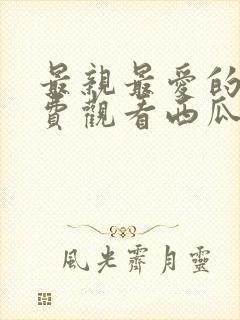 最親最愛的
費觀看西瓜
風光霽月靈